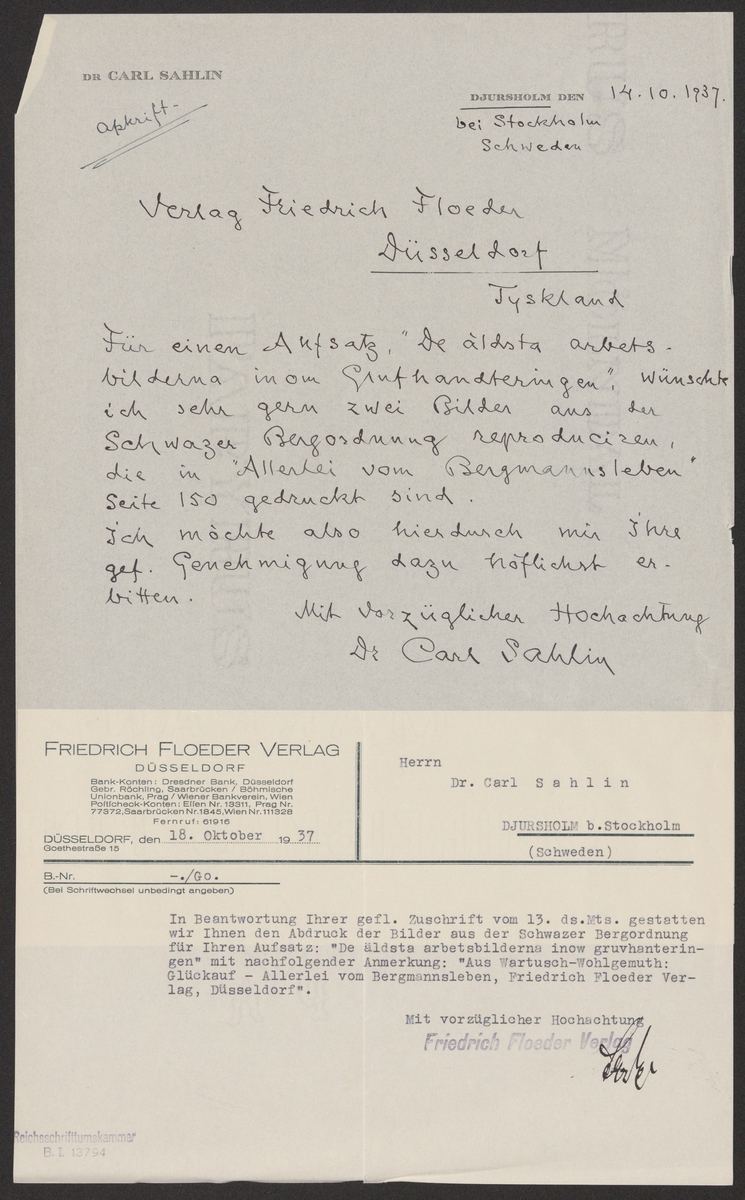 DR CARL SAHLIN
DJURSHOLM DEN 14.10.1937.
Apskrift
bei Stockholm
Schweden
Verlag Friedrich Floeder
Düsseldorf
Tyskland
Für einen Aufsatz, "De äldsta arbets-
bilderna inom Grufhandteringen", wünschte
ich sehr gern zwei Bilder aus der
Schwazer Bergordnung reproduciren,
die in "Allerlei vom Bergmannsleben"
Seite 150 gedruckt sind.
Ich möchte also hierdurch mir Ihre
gef. Genehmigung dazu höflichst er-
bitten.
Mit vorzüglicher Hochachtung
Dr Carl Sahlin
FRIEDRICH FLOEDER VERLAG
DÜSSELDORF
Bank-Konten: Dresdner Bank, Düsseldorf
Gebr. Röchling, Saarbrücken / Böhmische
Unionbank, Prag / Wiener Bankverein, Wien
Postscheck-Konten: Essen Nr. 13311, Prag Nr.
77372, Saarbrücken Nr. 1845, Wien Nr. 111328
Fernruf: 61916
DÜSSELDORF, den 18. Oktober 1937
Goethestraße 15
B.-Nr. -./Go.
(Bei Schriftwechsel unbedingt angeben)
Herrn
Dr. Carl S a h l i n
DJURSHOLM b.Stockholm
(Schweden)
In Beantwortung Ihrer gefl. Zuschrift vom 13. ds.Mts. gestatten
wir Ihnen den Abdruck der Bilder aus der Schwazer Bergordnung
für Ihren Aufsatz: "De äldsta arbetsbilderna inow gruvhanterin-
gen" mit nachfolgender Anmerkung: "Aus Wartusch-Wohlgemuth:
Glückauf - Allerlei vom Bergmannsleben, Friedrich Floeder Ver-
lag, Düsseldorf".
Mit vorzüglicher Hochachtung
Friedrich Floeder Verlag
Reichsschrifttumskammer
B. I. 13794